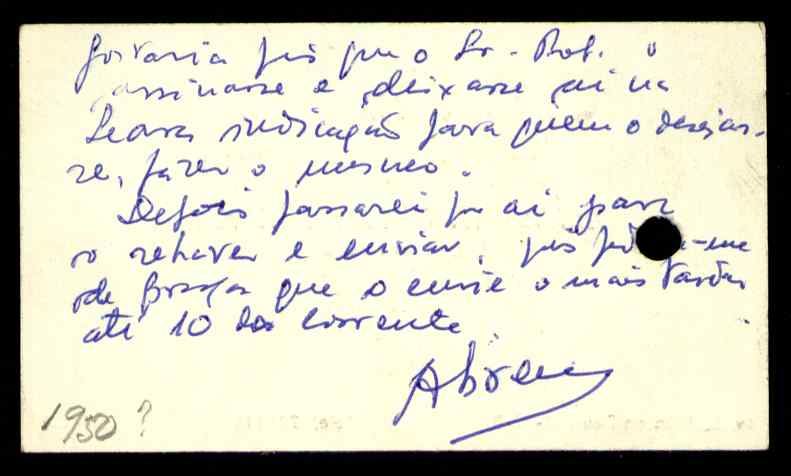 Gostaria pois que o Sr. Rob. o
assinasse e deixasse ai na
Seara indicação para quem o desejas-
se, fazer o mesmo.
Depois passarei por ai para
o rehaver e enviar, pois -me
de Braga que o envie o mais tardar
até 10 do corrente.
Abreu
1950?